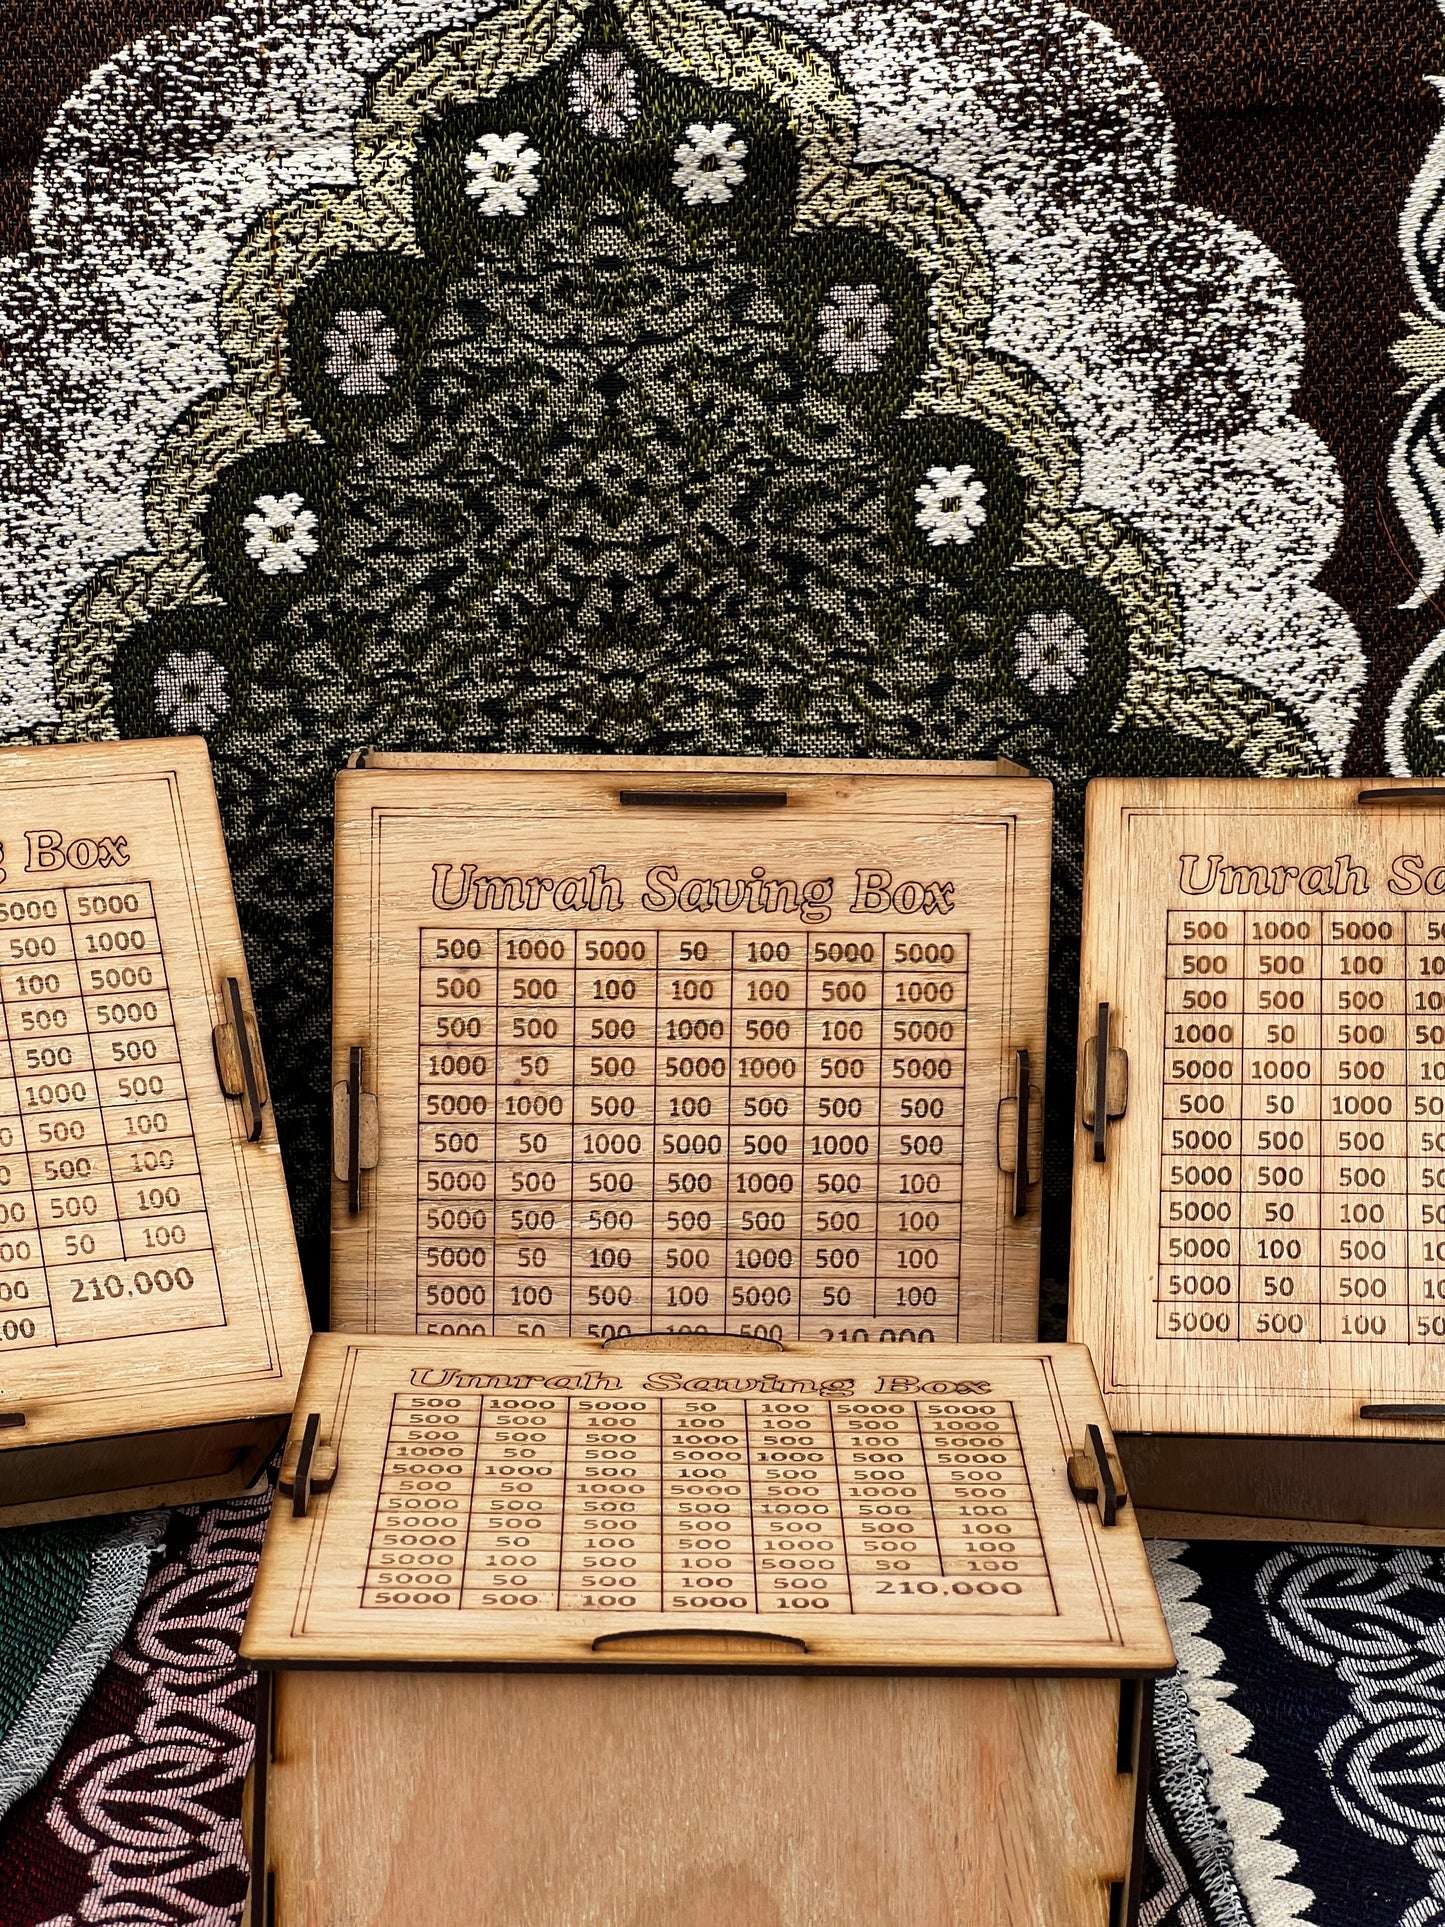 g Box
5000 5000
500 1000
100 5000
500 5000
500 500
1000 500
500 100
500 100
500 100
50 100
210,000
Umrah Saving Box
500 1000 5000 50 100 5000 5000
500 500 100 100 100 500 1000
500 500 500 1000 500 100 5000
1000 50 500 5000 1000 500 5000
5000 1000 500 100 500 500 500
500 50 1000 5000 500 1000 500
5000 500 500 500 1000 500 100
5000 500 500 500 500 500 100
5000 50 100 500 1000 500 100
5000 100 500 100 5000 50 100
5000 50 500 100 500 210,000
Umrah Sa
500 1000 5000
500 500 100
500 500 500
1000 50 500
5000 1000 500
500 50 1000
5000 500 500
5000 500 500
5000 50 100
5000 100 500
5000 50 500
5000 500 100
Umrah Saving Box
500 1000 5000 50 100 5000 5000
500 500 100 100 100 500 1000
500 500 500 1000 500 100 5000
1000 50 500 5000 1000 500 5000
5000 1000 500 100 500 500 500
500 50 1000 5000 500 1000 500
5000 500 500 500 1000 500 100
5000 500 500 500 500 500 100
5000 50 100 500 1000 500 100
5000 100 500 100 5000 50 100
5000 50 500 100 500 210,000
5000 500 100 5000 100